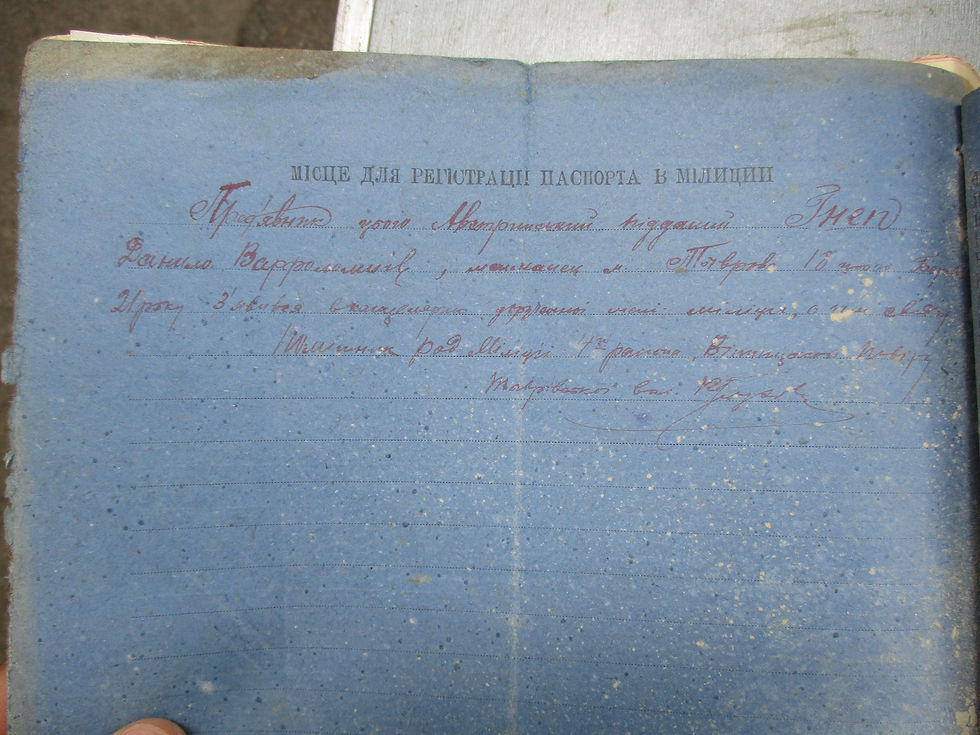 МІСЦЕ ДЛЯ РЕГІСТРАЦІІ ПАСПОРТА В МІЛИЦИИ
Пред'явник цього Австрийський підданий Гнеп
Данило Варфоломиїв, мешканец м Тиврова 18 цього
21 року З'явився в канцелярію міліції, о чем
Помішник рай Міліції 4го района Вінницького Повіту
Тиврівської вол.